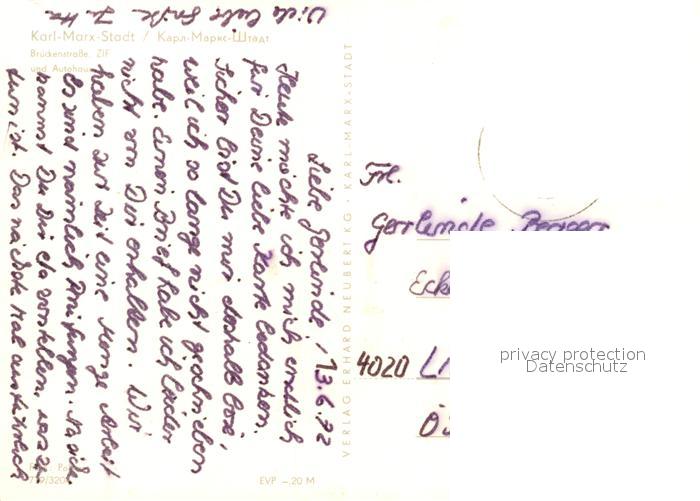 Karl-Marx-Stadt / Карл-Маркс-Штадт
Brückenstraße, ZIF
und Autohaus
13.6.72
Liebe Gerlinde!
Heute möchte ich mich endlich
für Deine liebe Karte bedanken.
Sicher bist Du mir deshalb böse,
weil ich so lange nicht geschrieben
habe. Einen Brief habe ich leider
nicht von Dir erhalten. Wir
haben zur Zeit eine Menge Arbeit
Es sind nämlich Prüfungen. Na ja
kannst Du Dir ja vorstellen, was zu
tun ist. Das nächste Mal ausführlich
Viele liebe Grüße
VERLAG ERHARD NEUBERT KG · KARL-MARX-STADT
EVP –.20 M
Frl.
Gerlinde
4020
privacy protection
Datenschutz